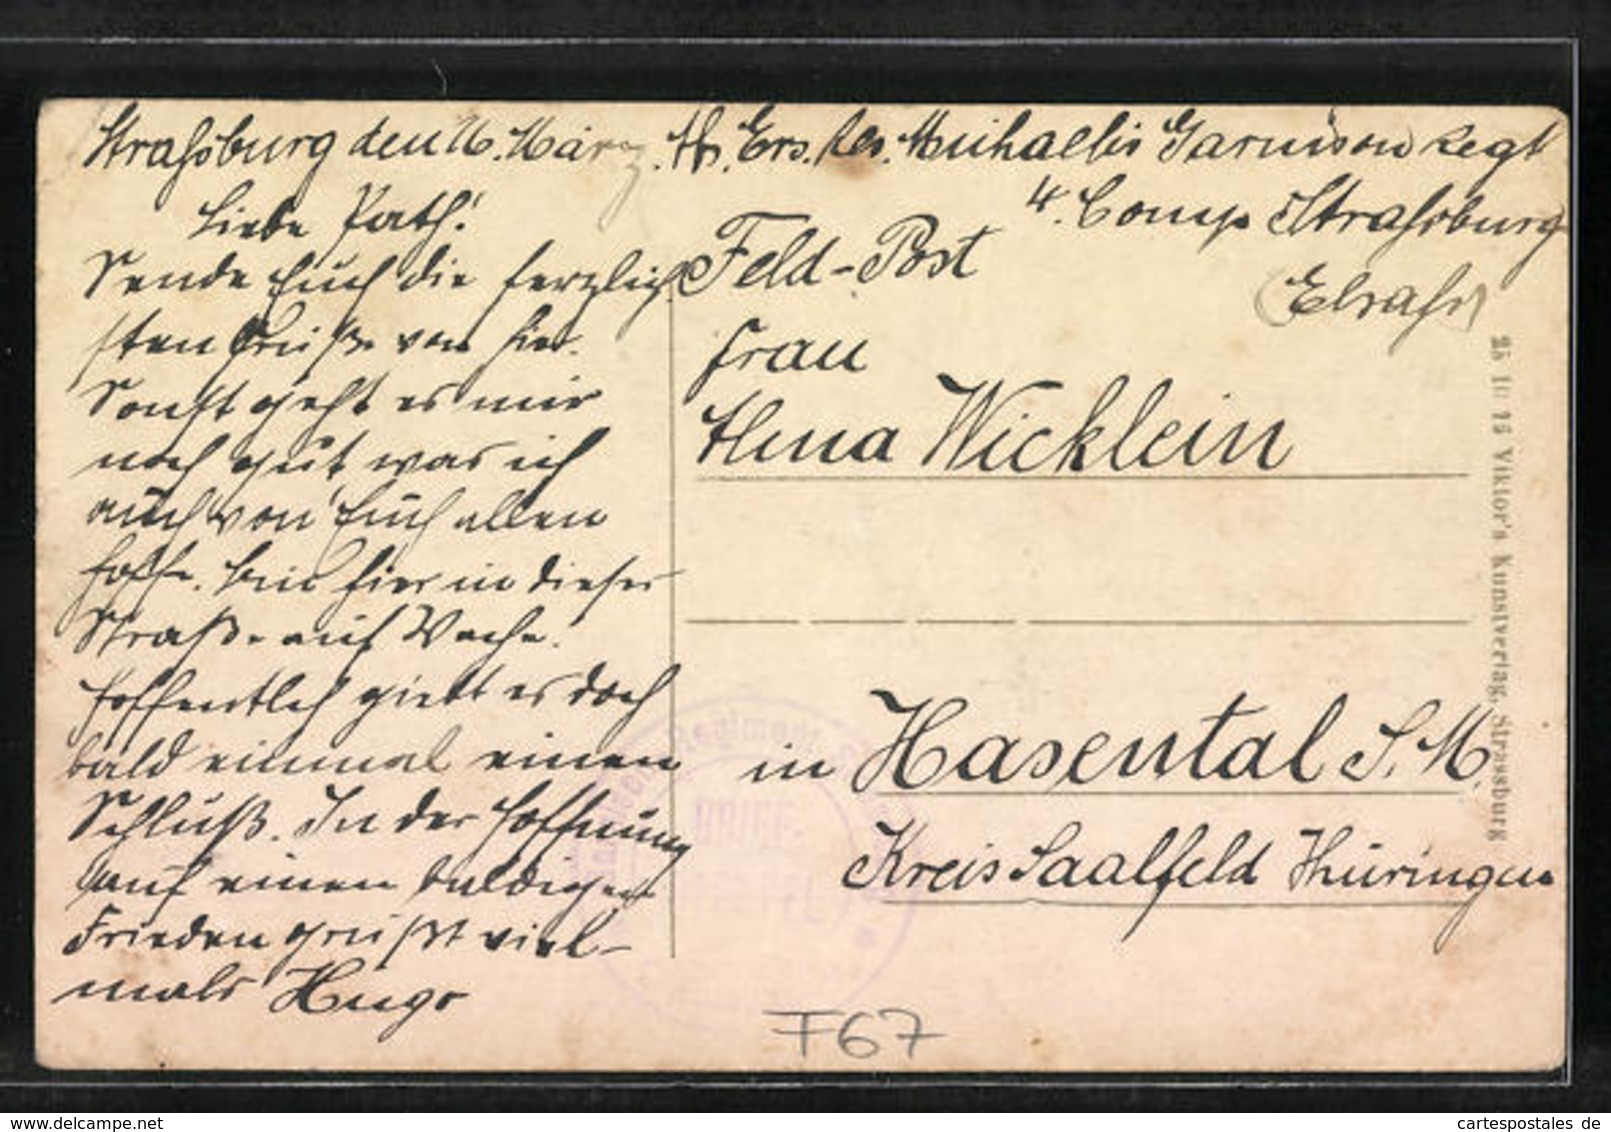 Straßburg den 16. März.
Liebe Path!
Sende Euch die herzlich
sten Grüße von hier.
Sonst geht es mir
noch gut, was ich
auch von Euch allen
hoffe. Bin hier in dieser
Straße auf Wache.
Hoffentlich giebt es doch
bald einmal einen
Schluß. In der Hoffnung
auf einen baldigen
Frieden grüßt viel-
mals Hugo
Ers. Res. Michaelis Garnison Regt
4. Comp Straßburg
(Elsaß)
Feld-Post
Frau
Wicklein
in Hasental S. M.
Kreis Saalfeld Thüringen
Regiment
BRIEF-
STEMPEL
T67
25 10 15 Viktor's Kunstverlag, Strassburg
www.delcampe.net
cartespostales de